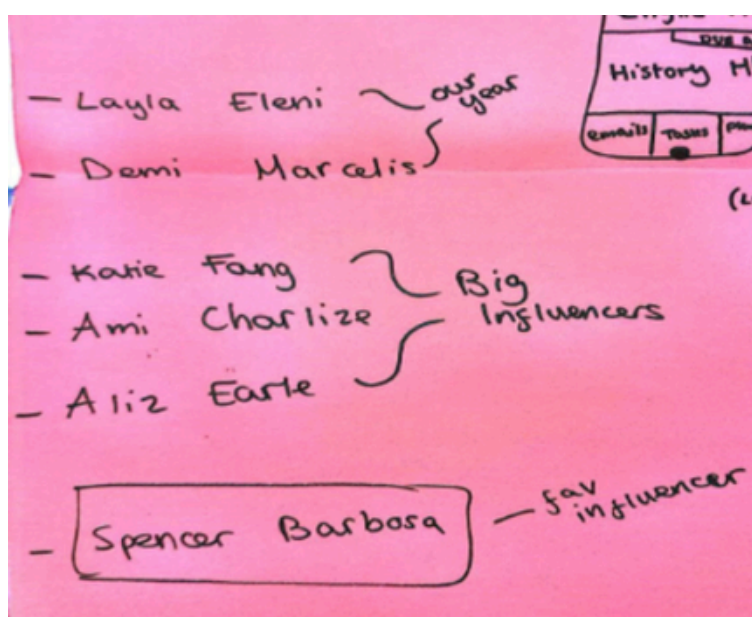 - Layla Eleni
our year
- Demi Marcelis
- Katie Fang
- Ami Charlize
- Aliz Earle
Big
Influencers
- Spencer Barbosa
- fav
influencer
DUE
History M
emails Tasks